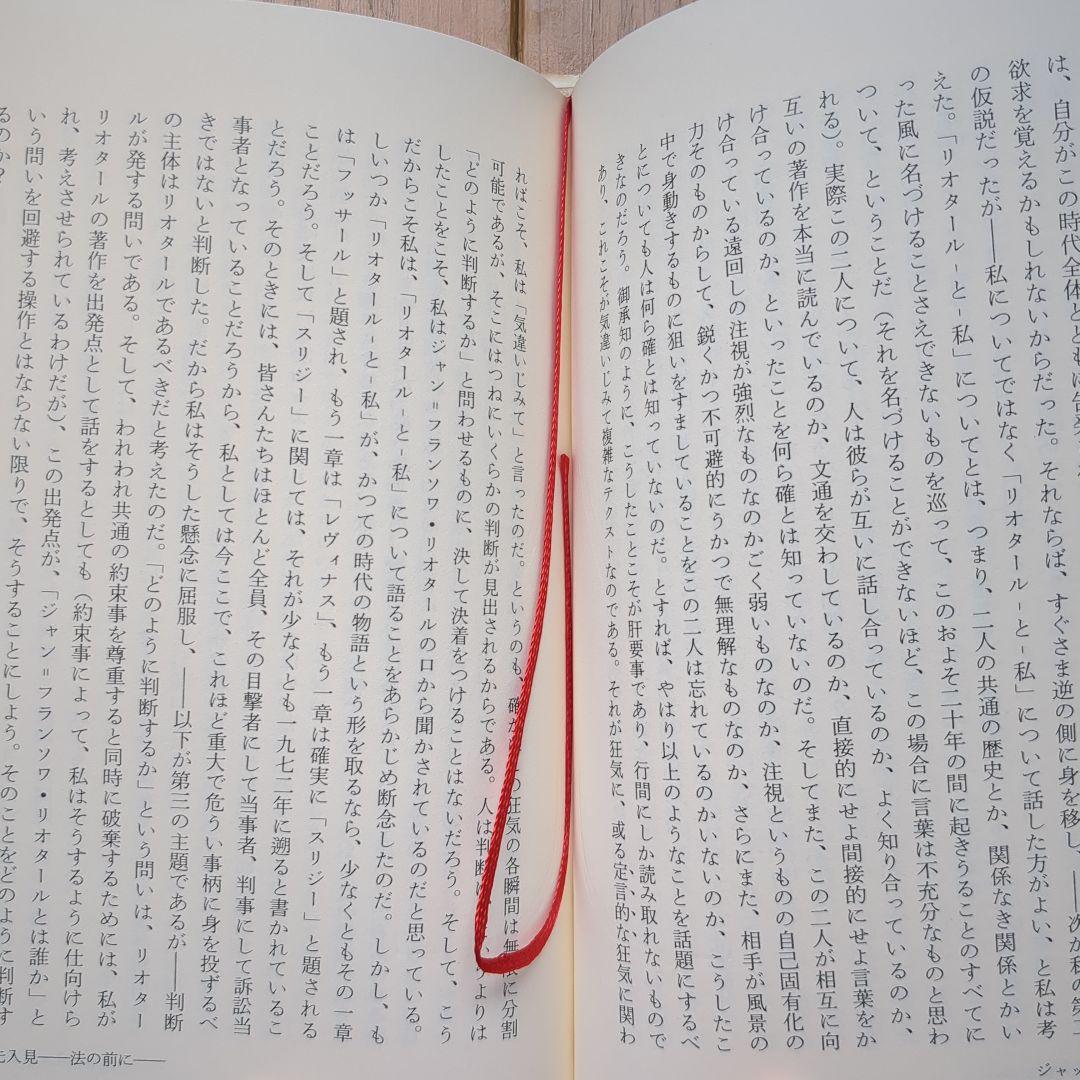 は、自分がこの時代全体とともに告発
欲求を覚えるかもしれないからだった。それならば、すぐさま逆の側に身を移し、――次が私の第二
の仮説だったが――私についてではなく「リオタール‐と‐私」について話した方がよい、と私は考
えた。「リオタール‐と‐私」についてとは、つまり、二人の共通の歴史とか、関係なき関係とかい
った風に名づけることさえできないものを巡って、このおよそ二十年の間に起きうることのすべてに
ついて、ということだ（それを名づけることができないほど、この場合に言葉は不充分なものと思わ
れる）。実際この二人について、人は彼らが互いに話し合っているのか、よく知り合っているのか、
互いの著作を本当に読んでいるのか、文通を交わしているのか、直接的にせよ間接的にせよ言葉をか
け合っているのか、といったことを何ら確とは知っていないのだ。そしてまた、この二人が相互に向
け合っている遠回しの注視が強烈なものなのかごく弱いものなのか、注視というものの自己固有化の
力そのものからして、鋭くかつ不可避的にうかつで無理解なものなのか、さらにまた、相手が風景の
中で身動きするものに狙いをすましていることをこの二人は忘れているのかいないのか、こうしたこ
とについても人は何ら確とは知っていないのだ。とすれば、やはり以上のようなことを話題にするべ
きなのだろう。御承知のように、こうしたことこそが肝要事であり、行間にしか読み取れないもので
あり、これこそが気違いじみて複雑なテクストなのである。それが狂気に、或る定言的な狂気に関わ
ればこそ、私は「気違いじみて」と言ったのだ。というのも、確か の狂気の各瞬間は無限に分割
可能であるが、そこにはつねにいくらかの判断が見出されるからである。人は判断 よりは
「どのように判断するか」と問わせるものに、決して決着をつけることはないだろう。そして、こう
したことをこそ、私はジャン＝フランソワ・リオタールの口から聞かされているのだと思っている。
だからこそ私は、「リオタール‐と‐私」について語ることをあらかじめ断念したのだ。しかし、も
しいつか「リオタール‐と‐私」が、かつての時代の物語という形を取るなら、少なくともその一章
は「フッサール」と題され、もう一章は「レヴィナス」、もう一章は確実に「スリジー」と題される
ことだろう。そして「スリジー」に関しては、それが少なくとも一九七二年に遡ると書かれている
とだろう。そのときには、皆さんたちはほとんど全員、その目撃者にして当事者、判事にして訴訟当
事者となっていることだろうから、私としては今ここで、これほど重大で危うい事柄に身を投ずるべ
きではないと判断した。だから私はそうした懸念に屈服し、――以下が第三の主題であるが――判断
の主体はリオタールであるべきだと考えたのだ。「どのように判断するか」という問いは、リオター
ルが発する問いである。そして、われわれ共通の約束事を尊重すると同時に破棄するためには、私が
リオタールの著作を出発点として話をするとしても（約束事によって、私はそうするように仕向けら
れ、考えさせられているわけだが）、この出発点が、「ジャン＝フランソワ・リオタールとは誰か」と
いう問いを回避する操作とはならない限りで、そうすることにしよう。そのことをどのように判断す
るのか？
先入見――法の前に――
ジャッ